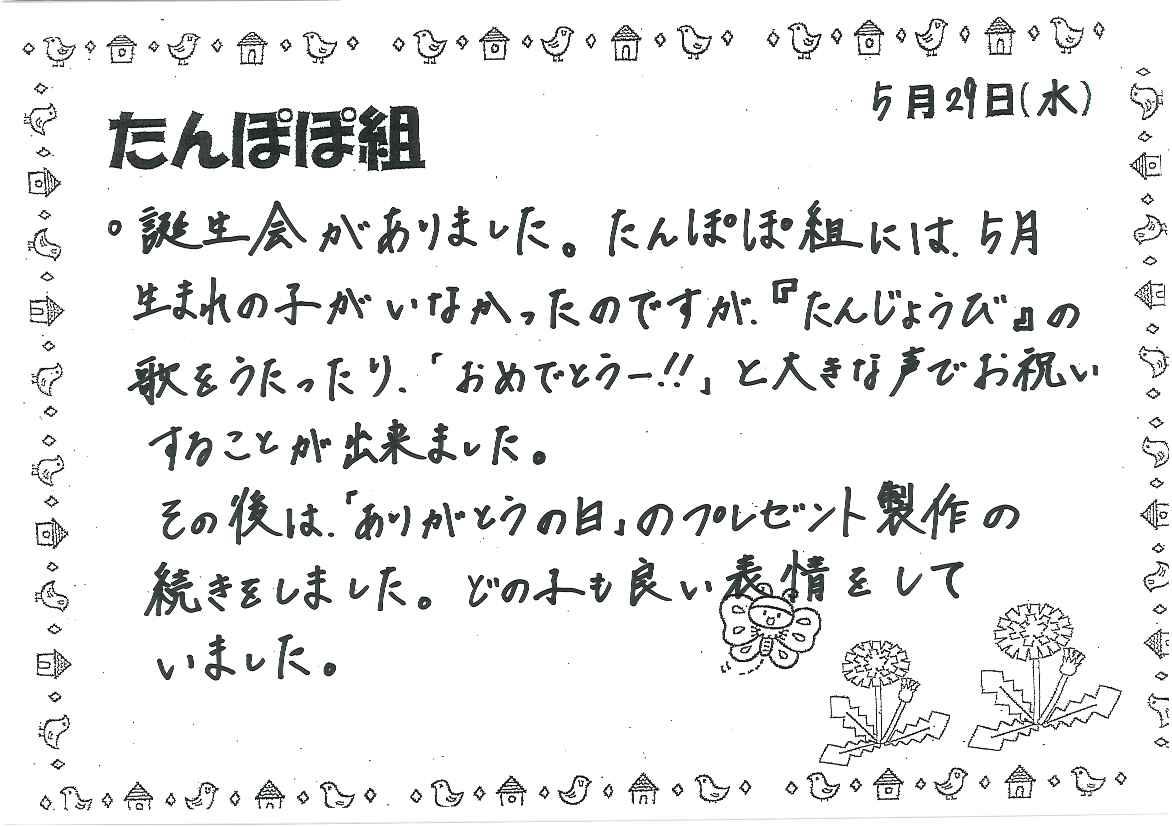 5月29日(水)
たんぽぽ組
。誕生会がありました。たんぽぽ組には、5月
生まれの子がいなかったのですが、『たんじょうび』の
歌をうたったり、「おめでとうー!!」と大きな声でお祝い
することが出来ました。
その後は、「ありがとうの日」のプレゼント製作の
続きをしました。どの子も良い表情をして
いました。